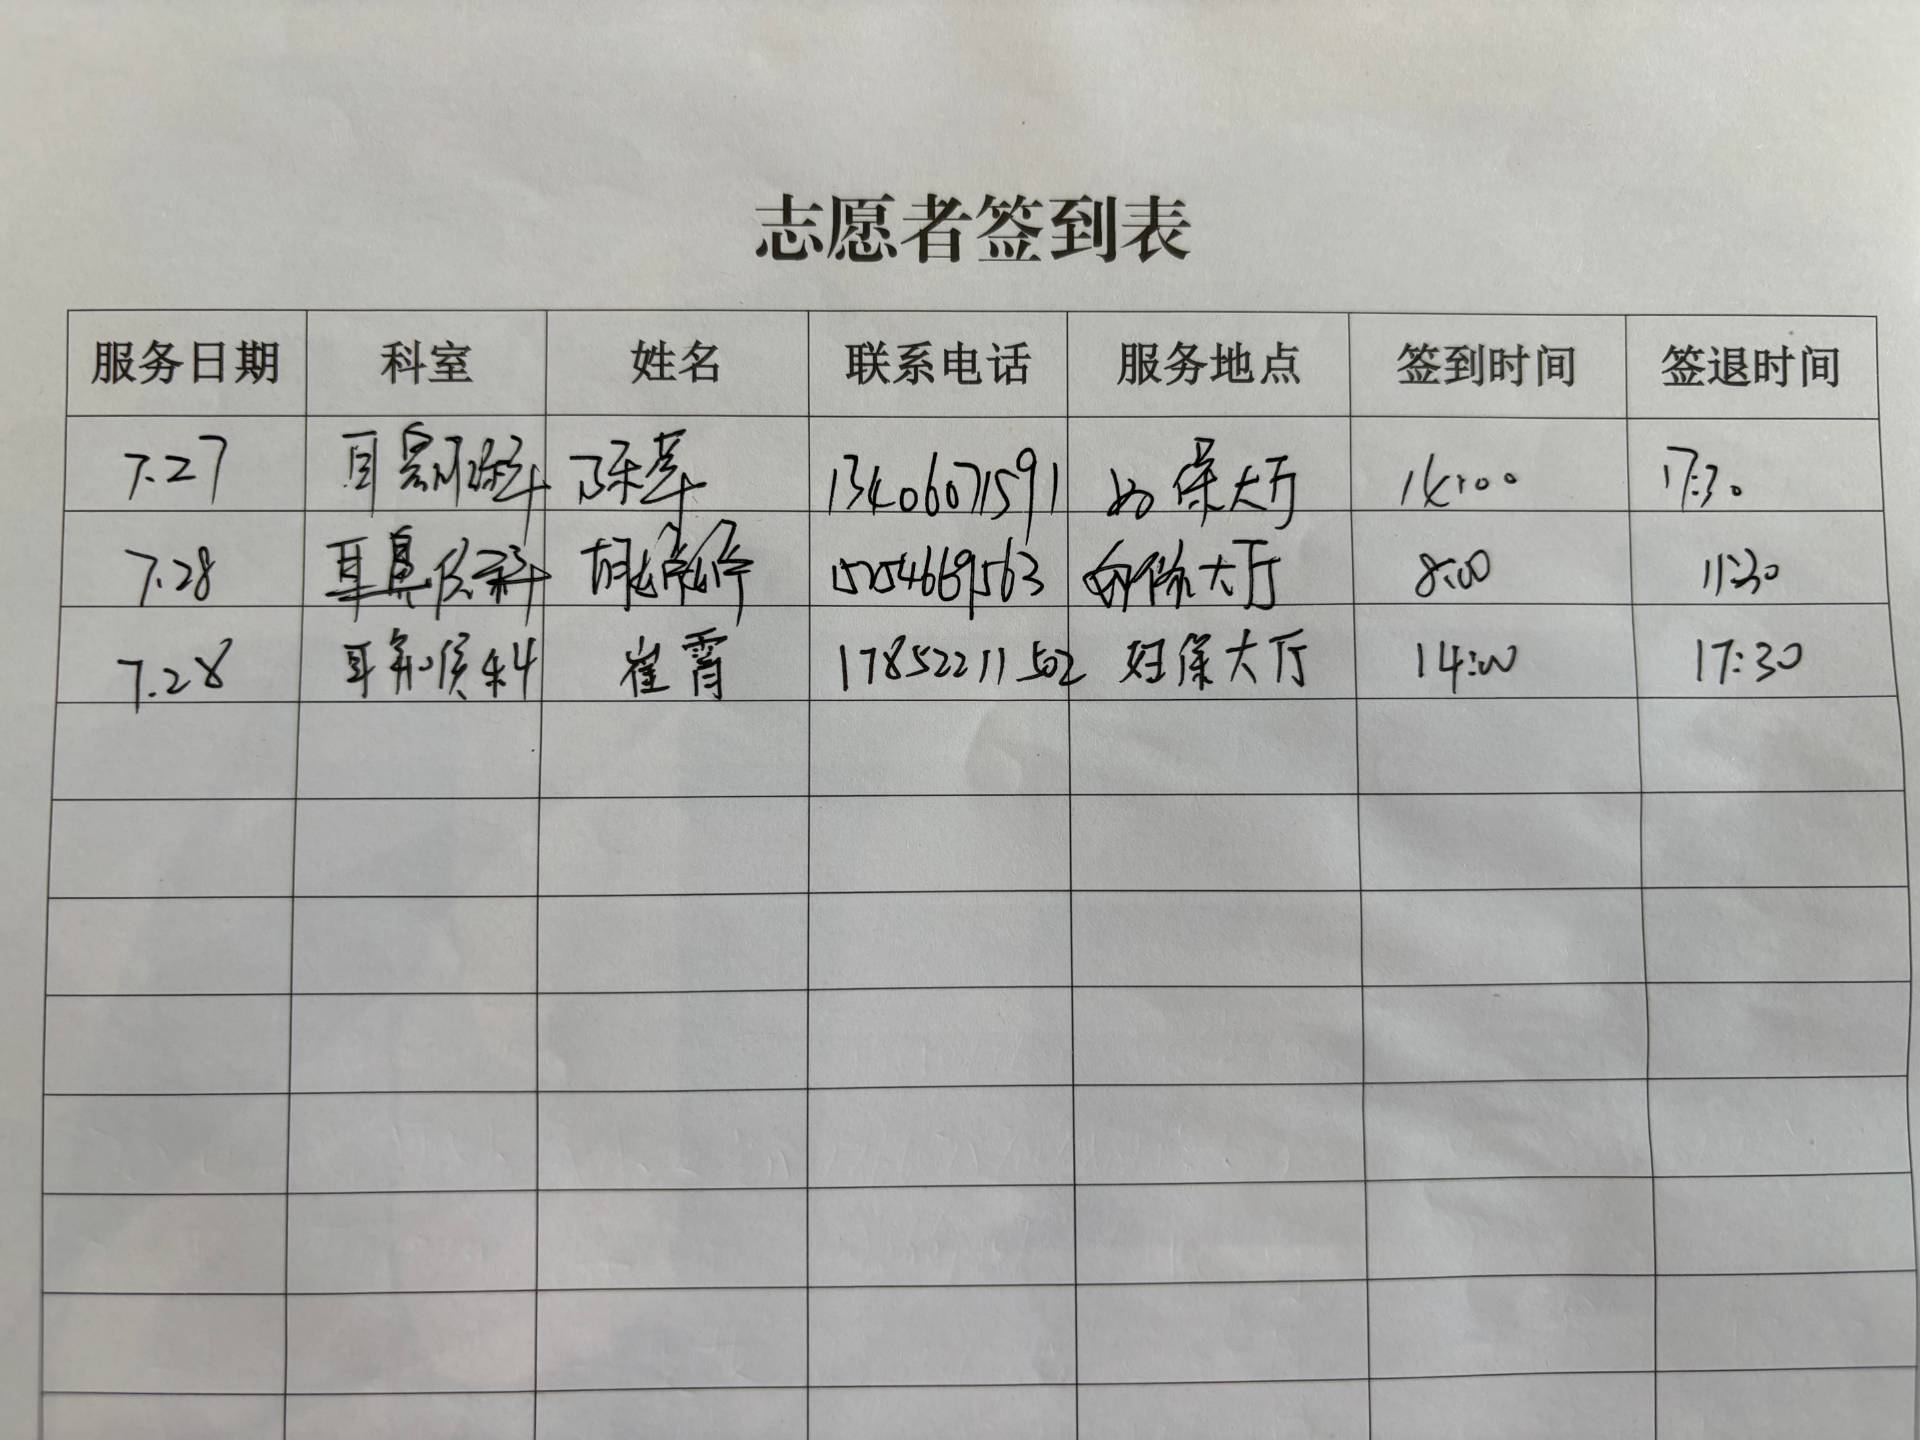 志愿者签到表
服务日期 科室 姓名 联系电话 服务地点 签到时间 签退时间
7.27 耳鼻喉科 陈苹 13406071591 妇保大厅 14:00 17:30
7.28 耳鼻喉科 胡婷婷 15154669563 妇保大厅 8:00 11:30
7.28 耳鼻喉科 崔霄 17852211502 妇保大厅 14:00 17:30